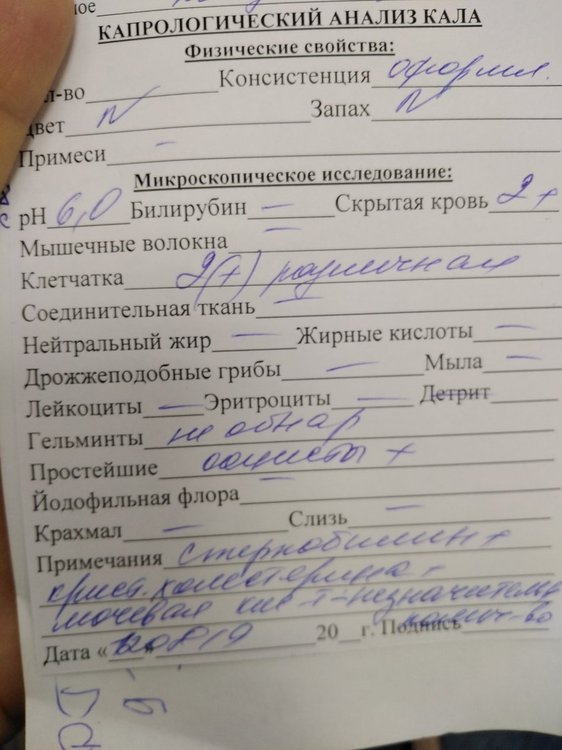 ное
КАПРОЛОГИЧЕСКИЙ АНАЛИЗ КАЛА
Физические свойства:
л-во Консистенция оформл.
Цвет N Запах N
Примеси –
Микроскопическое исследование:
pH 6,0 Билирубин – Скрытая кровь 2+
Мышечные волокна –
Клетчатка 2(+)
Соединительная ткань –
Нейтральный жир – Жирные кислоты –
Дрожжеподобные грибы – Мыла –
Лейкоциты – Эритроциты – Детрит
Гельминты не обнар
Простейшие ооцисты +
Йодофильная флора –
Крахмал – Слизь –
Примечания стеркобилин +
крист. холестерина +
мочевая незначительн
Дата « » 20 г. Подпись колич-во